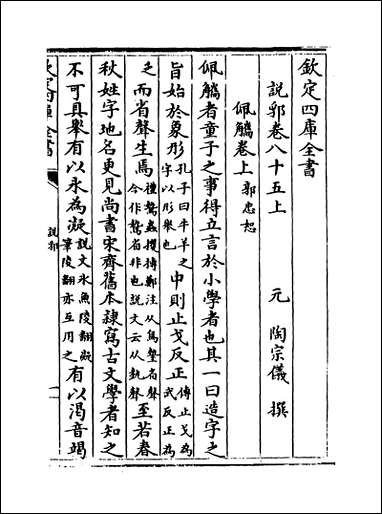 欽定四庫全書
說郛卷八十五上
元 陶宗儀 撰
佩觿卷上 郭忠恕
佩觿者童子之事得立言於小學者也其一曰造字之
旨始於象形 孔子曰牛羊之字以形舉也 中則止戈反正 傳止戈為武反正為
乏 而省聲生焉 禮鷙蟲攫搏鄭注从鳥摯省聲今作鷙省非也說文云从執聲 至若春
秋姓字地名更見尚書宋齊舊本隸寫古文學者知之
不可具舉有以冰為凝 說文冰魚陵翻凝筆陵翻亦互用之 有以渴音竭
欽定四庫全書
說郛
一